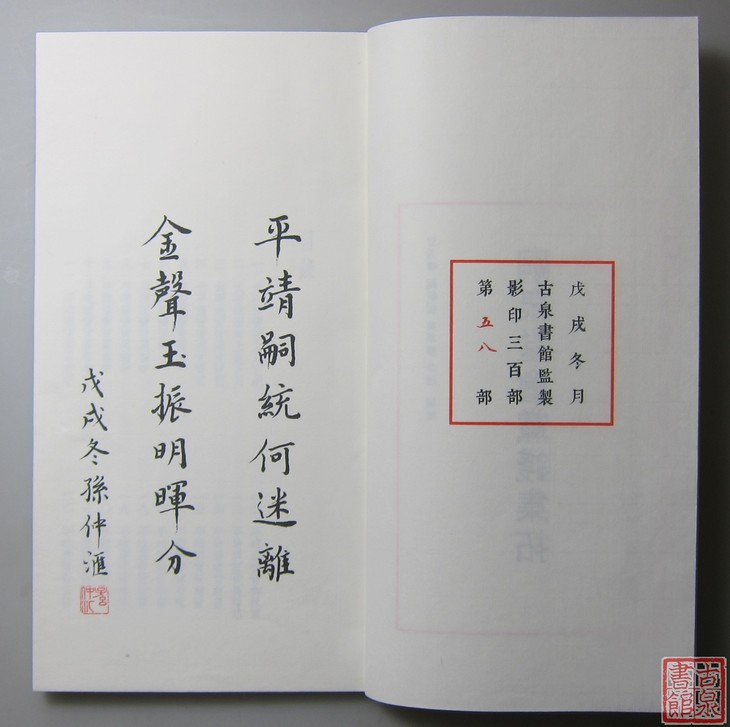 戊戌冬月
古泉書館監製
影印三百部
第五八部
平靖嗣統何迷離
金聲玉振明暉分
戊戌冬孫仲滙
古泉
書館